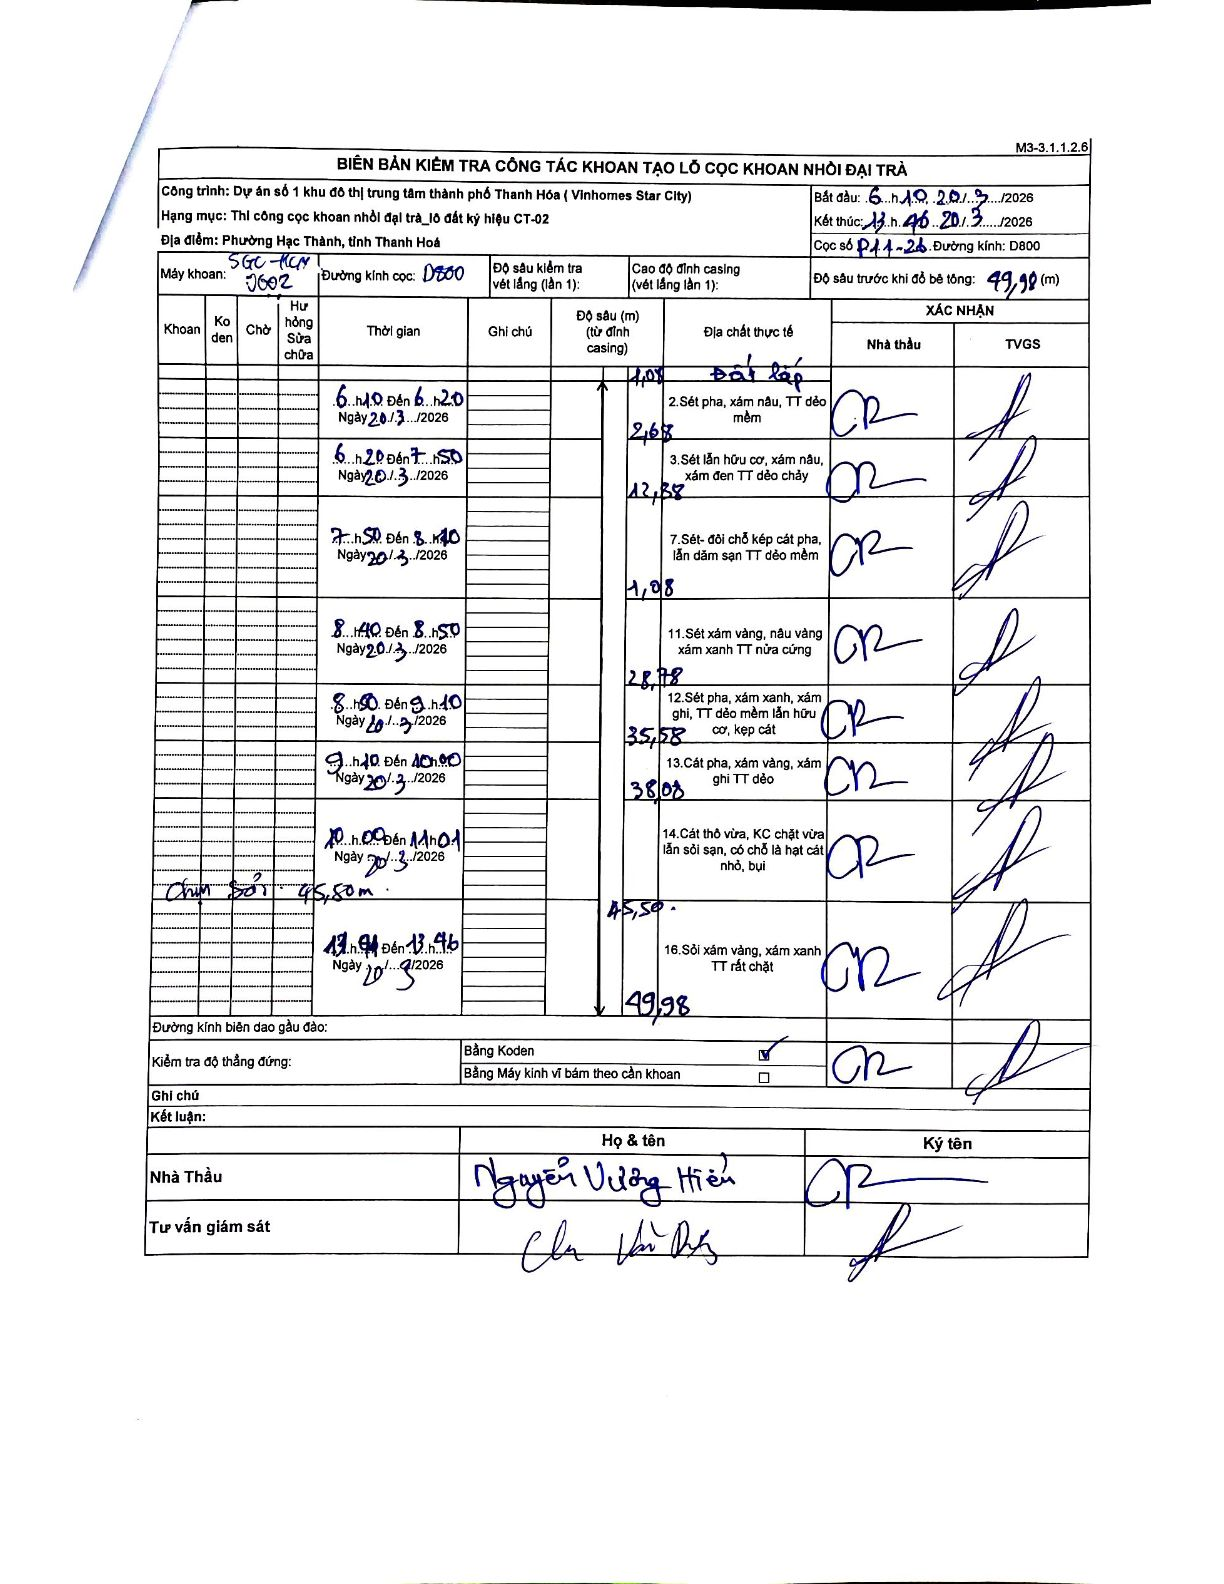 M3-3.1.1.2.6
BIÊN BẢN KIỂM TRA CÔNG TÁC KHOAN TẠO LỖ CỌC KHOAN NHỒI ĐẠI TRÀ
Công trình: Dự án số 1 khu đô thị trung tâm thành phố Thanh Hóa ( Vinhomes Star City)
Hạng mục: Thi công cọc khoan nhồi đại trà_lô đất ký hiệu CT-02
Địa điểm: Phường Hạc Thành, tỉnh Thanh Hoá
Bắt đầu: 6 h 10 20/3/2026
Kết thúc: 13 h 46 20/3/2026
Cọc số P11-26 Đường kính: D800
Máy khoan: SGC-HCM
Đường kính cọc: D800
Độ sâu kiểm tra vét lắng (lần 1):
Cao độ đỉnh casing (vét lắng lần 1):
Độ sâu trước khi đổ bê tông: 49,98 (m)
Khoan
Ko den
Chờ
Hư hỏng Sửa chữa
Thời gian
Ghi chú
Độ sâu (m) (từ đỉnh casing)
Địa chất thực tế
XÁC NHẬN
Nhà thầu
TVGS
1,08 Đất lấp
6 h 10 Đến 6 h 20
Ngày 20/3/2026
2.Sét pha, xám nâu, TT dẻo
mềm
2,68
6 h 20 Đến 7 h 50
Ngày 20/3/2026
3.Sét lẫn hữu cơ, xám nâu,
xám đen TT dẻo chảy
12,38
7 h 50 Đến 8 h 40
Ngày 20/3/2026
7.Sét- đôi chỗ kép cát pha,
lẫn dăm sạn TT dẻo mềm
1,08
8 h 40 Đến 8 h 50
Ngày 20/3/2026
11.Sét xám vàng, nâu vàng
xám xanh TT nửa cứng
28,78
8 h 50 Đến 9 h 10
Ngày 20/3/2026
12.Sét pha, xám xanh, xám
ghi, TT dẻo mềm lẫn hữu
cơ, kẹp cát
35,58
9 h 10 Đến 10 h 00
Ngày 20/3/2026
13.Cát pha, xám vàng, xám
ghi TT dẻo
38,08
10 h 00 Đến 11 h 01
Ngày 20/3/2026
14.Cát thô vừa, KC chặt vừa
lẫn sỏi sạn, có chỗ là hạt cát
nhỏ, bụi
Chạm Sỏi: 45,50m.
45,50.
Đến 13 h 46
Ngày 20/3/2026
16.Sỏi xám vàng, xám xanh
TT rất chặt
49,98
Đường kính biên dao gầu đào:
Kiểm tra độ thẳng đứng:
Bằng Koden ☑
Bằng Máy kinh vĩ bám theo cần khoan ☐
Ghi chú
Kết luận:
Họ & tên
Ký tên
Nhà Thầu
Nguyễn Vương Hiển
Tư vấn giám sát